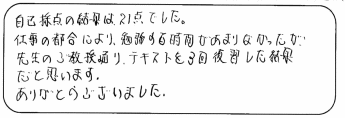 自己採点の結果は、21点でした。
仕事の都合により、勉強する時間があまりなかったが、
先生のご教授通り、テキストを3回復習した結果
だと思います。
ありがとうございました。